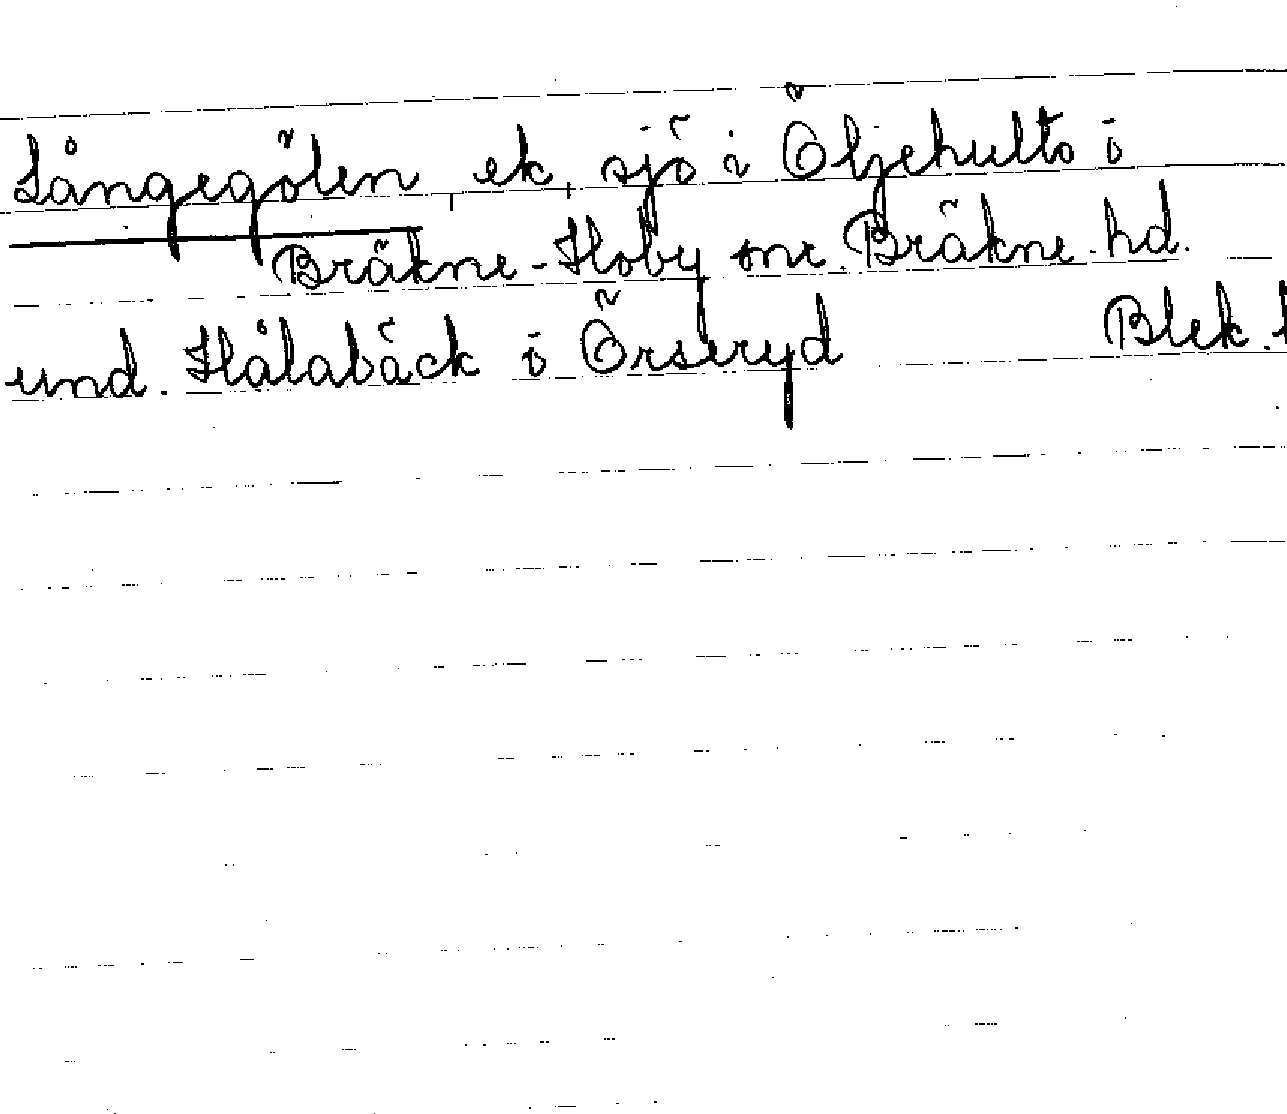 Långegölen, ek, sjö i Öljehult i
Bräkne-Hoby sn. Bräkne hd.
und. Hålabäck i Örseryd Blek. l